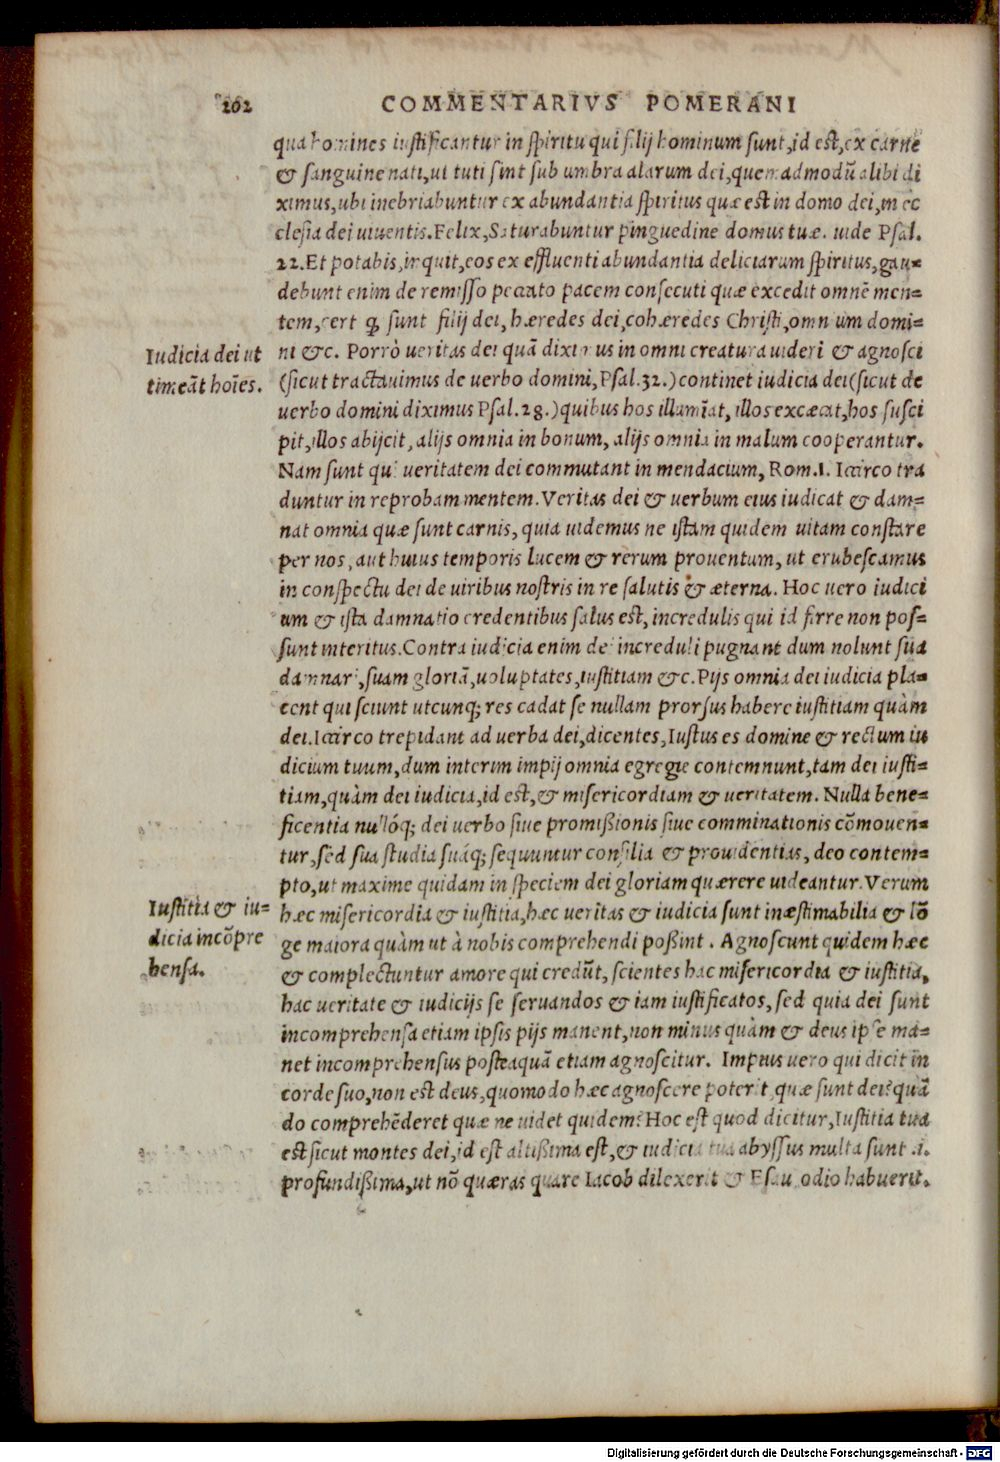 202 COMMENTARIVS POMERANI
qua homines iustificantur in spiritu qui filij hominum sunt, id est, ex carne
& sanguine nati, ut tuti sint sub umbra alarum dei, quemadmodũ alibi di
ximus, ubi inebriabuntur ex abundantia spiritus quæ est in domo dei, in ec
clesia dei uiuentis. Felix, Saturabuntur pinguedine domus tuæ. uide Psal.
22. Et potabis, inquit, eos ex effluenti abundantia deliciarum spiritus, gau=
debunt enim de remisso peccato pacem consecuti quæ excedit omnẽ men=
tem, certi q; sunt filij dei, hæredes dei, cohæredes Christi, omnium domi=
Iudicia dei ut
timeãt hoĩes.
ni &c. Porrò ueritas dei quã diximus in omni creatura uideri & agnosci
(sicut tractauimus de uerbo domini, Psal. 32.) continet iudicia dei (sicut de
uerbo domini diximus Psal. 28.) quibus hos illumĩat, illos excæcat, hos susci
pit, illos abijcit, alijs omnia in bonum, alijs omnia in malum cooperantur.
Nam sunt qui ueritatem dei commutant in mendacium, Rom. 1. Iccirco tra
duntur in reprobam mentem. Veritas dei & uerbum eius iudicat & dam=
nat omnia quæ sunt carnis, quia uidemus ne istam quidem uitam constare
per nos, aut huius temporis lucem & rerum prouentum, ut erubescamus
in conspectu dei de uiribus nostris in re salutis & æterna. Hoc uero iudici
um & ista damnatio credentibus salus est, incredulis qui id ferre non pos=
sunt interitus. Contra iudicia enim dei increduli pugnant dum nolunt sua
damnari, suam gloriã, uoluptates, iustitiam &c. Pijs omnia dei iudicia pla=
cent qui sciunt utcunq; res cadat se nullam prorsus habere iustitiam quàm
dei. Iccirco trepidant ad uerba dei, dicentes, Iustus es domine & rectum iu
dicium tuum, dum interim impij omnia egregie contemnunt, tam dei iusti=
tiam, quàm dei iudicia, id est, & misericordiam & ueritatem. Nulla bene=
ficentia nullóq; dei uerbo siue promißionis siue comminationis cõmouen=
tur, sed sua studia suáq; sequuntur consilia & prouidentias, deo contem=
pto, ut maxime quidam in speciem dei gloriam quærere uideantur. Verum
Iustitia & iu=
dicia incõpre
hensa.
hæc misericordia & iustitia, hæc ueritas & iudicia sunt inæstimabilia & lõ
ge maiora quàm ut à nobis comprehendi poßint. Agnoscunt quidem hæc
& complectuntur amore qui credũt, scientes hac misericordia & iustitia,
hac ueritate & iudicijs se seruandos & iam iustificatos, sed quia dei sunt
incomprehensa etiam ipsis pijs manent, non minus quàm & deus ipse ma=
net incomprehensus posteaquã etiam agnoscitur. Impius uero qui dicit in
corde suo, non est deus, quomodo hæc agnoscere poterit, quæ sunt dei? quã
do comprehẽderet quæ ne uidet quidem? Hoc est quod dicitur, Iustitia tua
est sicut montes dei, id est altißima est, & iudicia tua abyssus multa sunt .i.
profundißima, ut nõ quæras quare Iacob dilexerit & Esau odio habuerit.
Digitalisierung gefördert durch die Deutsche Forschungsgemeinschaft - DFG